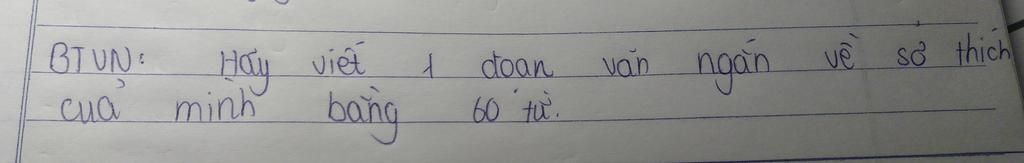 BTVN: Hãy viết 1 đoan văn ngắn về sở thích
của mình bằng 60 từ.